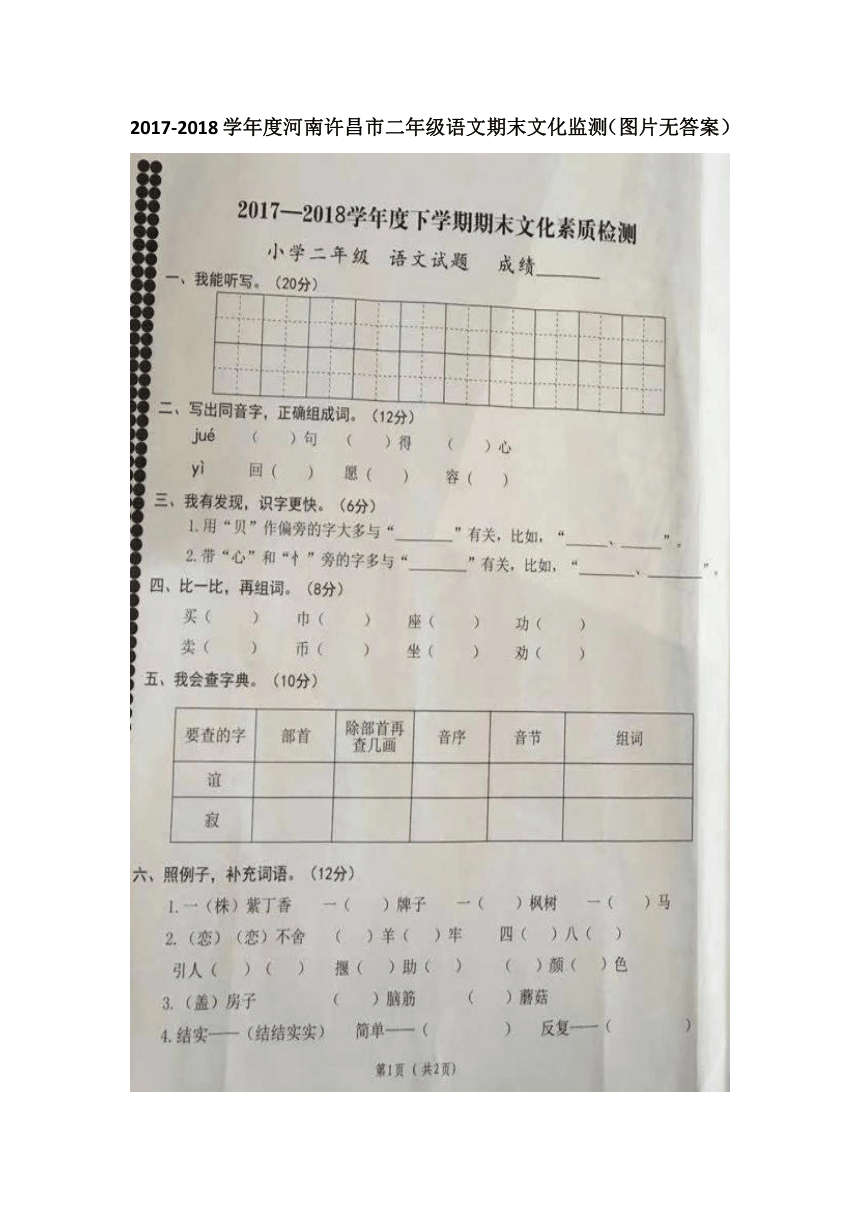 2017-2018 学年度河南许昌市二年级语文期末文化监测（图片无答案）
2017—2018学年度下学期期末文化素质检测
小学二年级 语文试题 成绩______
一、我能听写。（20分）
二、写出同音字，正确组成词。（12分）
jué （ ）句 （ ）得 （ ）心
yì 回（ ） 愿（ ） 容（ ）
三、我有发现，识字更快。（6分）
1.用“贝”作偏旁的字大多与“______”有关，比如，“____、____”。
2.带“心”和“忄”旁的字多与“______”有关，比如，“______、______”。
四、比一比，再组词。（8分）
买（ ） 巾（ ） 座（ ） 功（ ）
卖（ ） 币（ ） 坐（ ） 劝（ ）
五、我会查字典。（10分）
要查的字 部首 除部首再查几画 音序 音节 组词
谊
寂
六、照例子，补充词语。（12分）
1.一（株）紫丁香 一（ ）牌子 一（ ）枫树 一（ ）马
2.（恋）（恋）不舍 （ ）羊（ ）牢 四（ ）八（ ）
引人（ ）（ ） 揠（ ）助（ ） （ ）颜（ ）色
3.（盖）房子 （ ）脑筋 （ ）蘑菇
4.结实——（结结实实） 简单——（ ） 反复——（ ）
第1页（共2页）